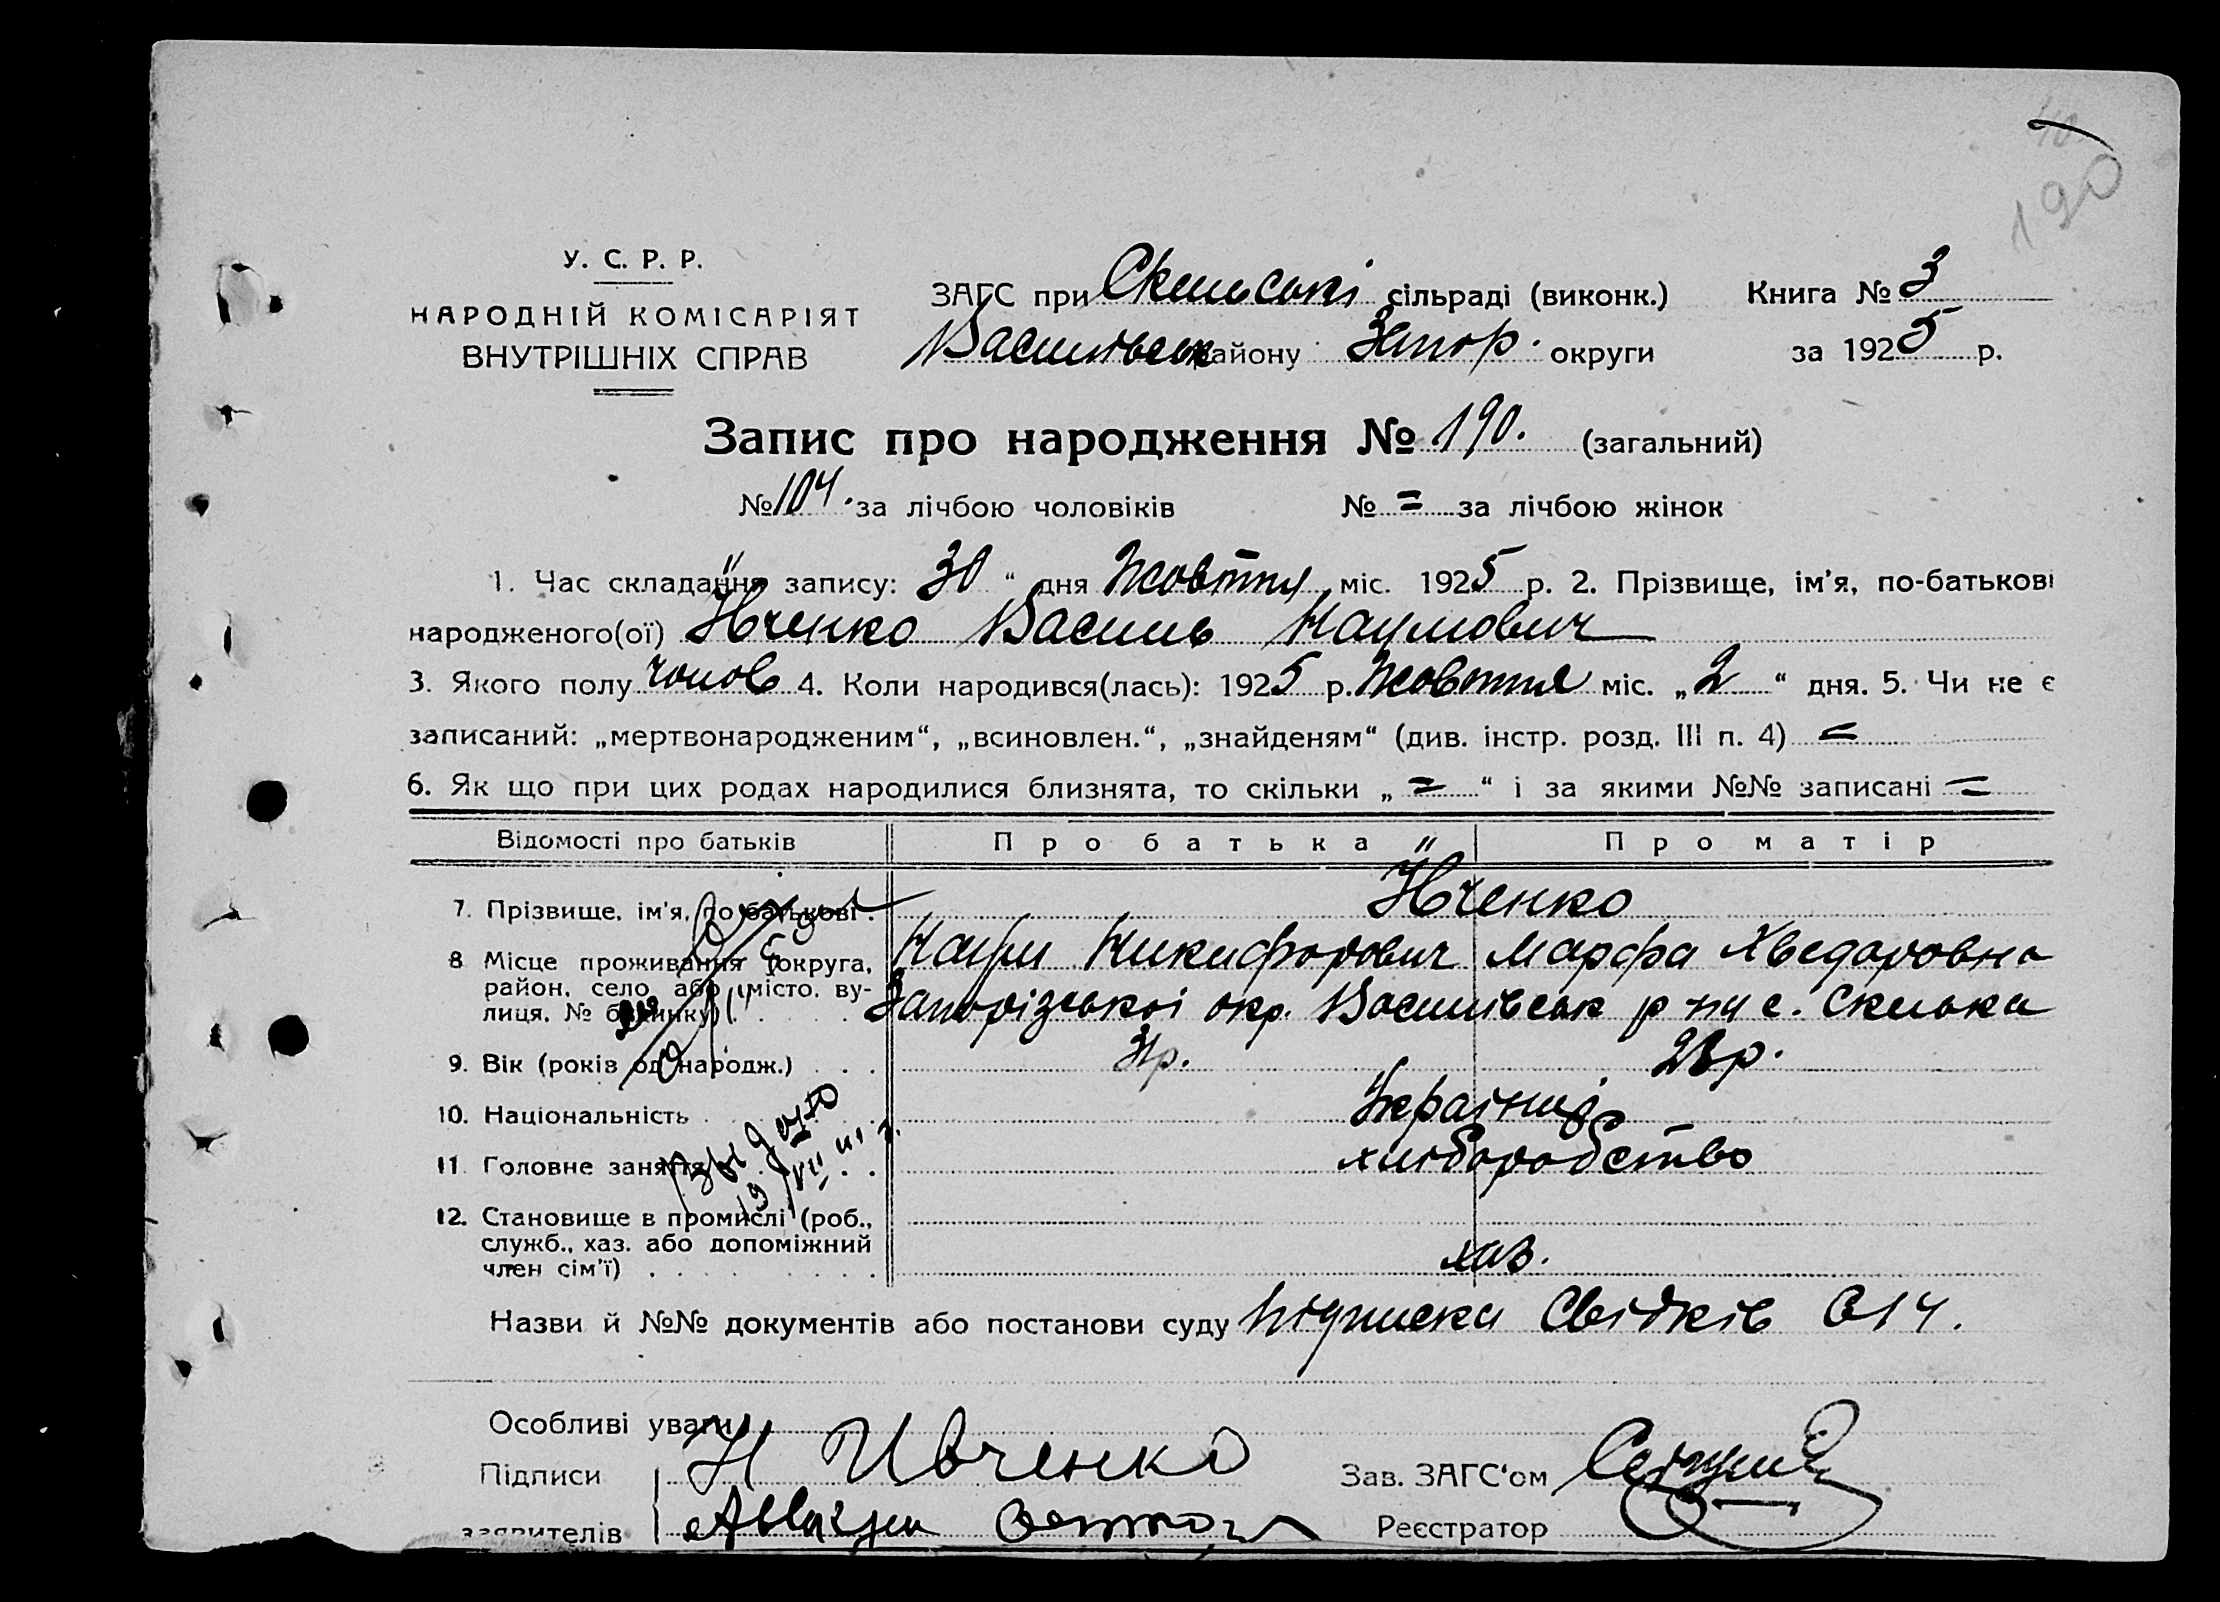 190
У. С. Р. Р.
НАРОДНІЙ КОМІСАРІЯТ
ВНУТРІШНІХ СПРАВ
ЗАГС при Скельські сільраді (виконк.) Книга № 3
Василівськ району Запор. округи за 1925 р.
Запис про народження № 190. (загальний)
№ 104. за лічбою чоловіків № = за лічбою жінок
1. Час складання запису: 30 “ дня Жовтня міс. 1925 р. 2. Прізвище, ім'я, по-батькові
народженого(ої) Ївченко Василь Наумович
3. Якого полу чолов 4. Коли народився(лась): 1925 р. Жовтня міс. „2“ дня. 5. Чи не є
записаний: „мертвонародженим“, „всиновлен.“, „знайденям“ (див. інстр. розд. III п. 4) =
6. Як що при цих родах народилися близнята, то скільки „ = “ і за якими №№ записані =
Відомості про батьків Про батька Про матір
7. Прізвище, ім'я, по батькові . Ївченко
Наум Никифорович Марфа Хведоровна
8 Місце проживання (округа,
район, село або місто, ву-
лиця, № будинку) Запорізської окр. Василівськ р ну с. Скелька
9. Вік (років од народж.) . . . 31р. 28р.
10. Національність Україн
11 Головне заняття хліборобство
12. Становище в промислі (роб.,
служб., хаз. або допоміжний
член сім'ї) хаз.
Видано
Назви й №№ документів або постанови суду Підписка Свідків 614.
Особливі уваги
Підписи Н Ивченко Зав. ЗАГС'ом
заявителів Реєстратор